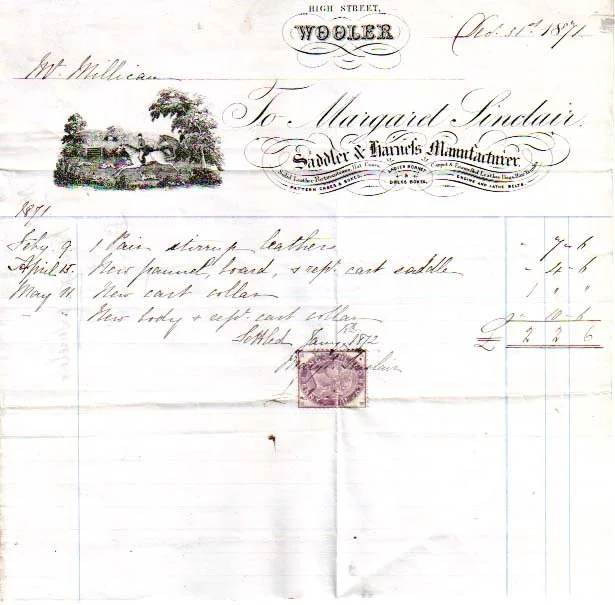 HIGH STREET,
WOOLER
Dec. 31st 1871
Mr. Millican
To Margaret Sinclair.
Saddler & Harness Manufacturer.
Solid Leather Portmanteaus, Hat Cases,
PATTERN CASES & BOXES.
LADIES BONNET
& DRESS BOXES.
Carpet & Enamelled Leather Bags,
ENGINE AND LATHE BELTS.
1871
Feby. 9. 1 Pair stirrup leathers " 7 - 6
April 15. New pannel, board, & rept. cart saddle - 4 - 6
May 11. New cart collar 1 " "
- " New body & rept. cart collar - 10 - 6
£ 2 2 6
Settled Jany. 1872
Margt Sinclair